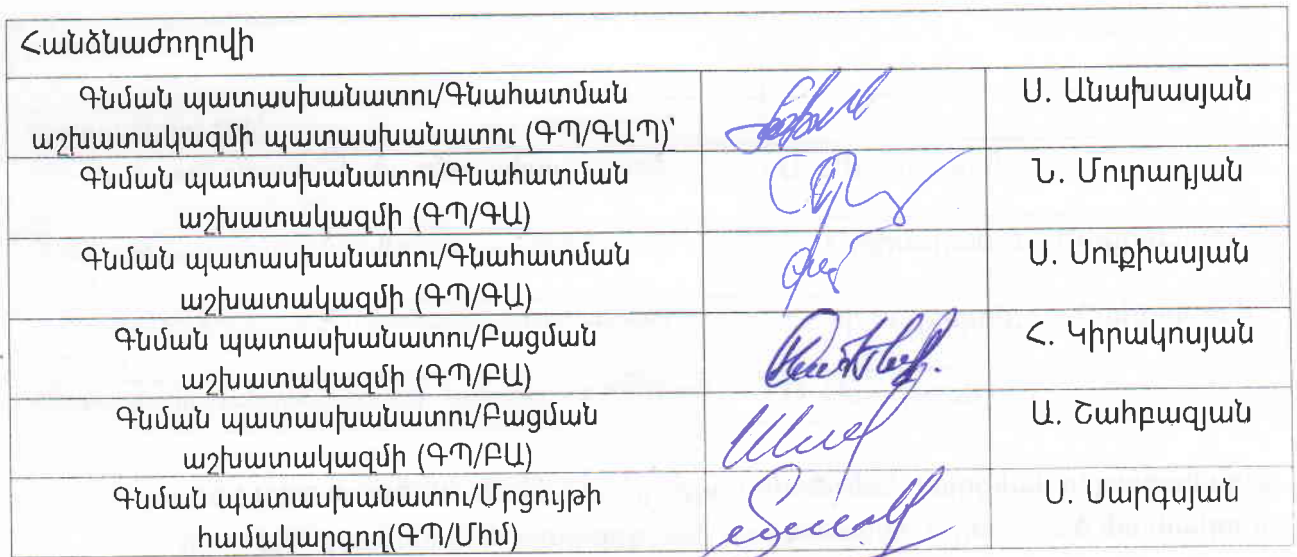 Հանձնաժողովի
Գնման պատասխանատու/Գնահատման
աշխատակազմի պատասխանատու (ԳՊ/ԳԱՊ)՝
Ս. Անախասյան
Գնման պատասխանատու/Գնահատման
աշխատակազմի (ԳՊ/ԳԱ)
Ն. Մուրադյան
Գնման պատասխանատու/Գնահատման
աշխատակազմի (ԳՊ/ԳԱ)
Ս. Սուքիասյան
Գնման պատասխանատու/Բացման
աշխատակազմի (ԳՊ/ԲԱ)
Հ. Կիրակոսյան
Գնման պատասխանատու/Բացման
աշխատակազմի (ԳՊ/ԲԱ)
Ա. Շահբազյան
Գնման պատասխանատու/Մրցույթի
համակարգող(ԳՊ/Մհմ)
Ս. Սարգսյան